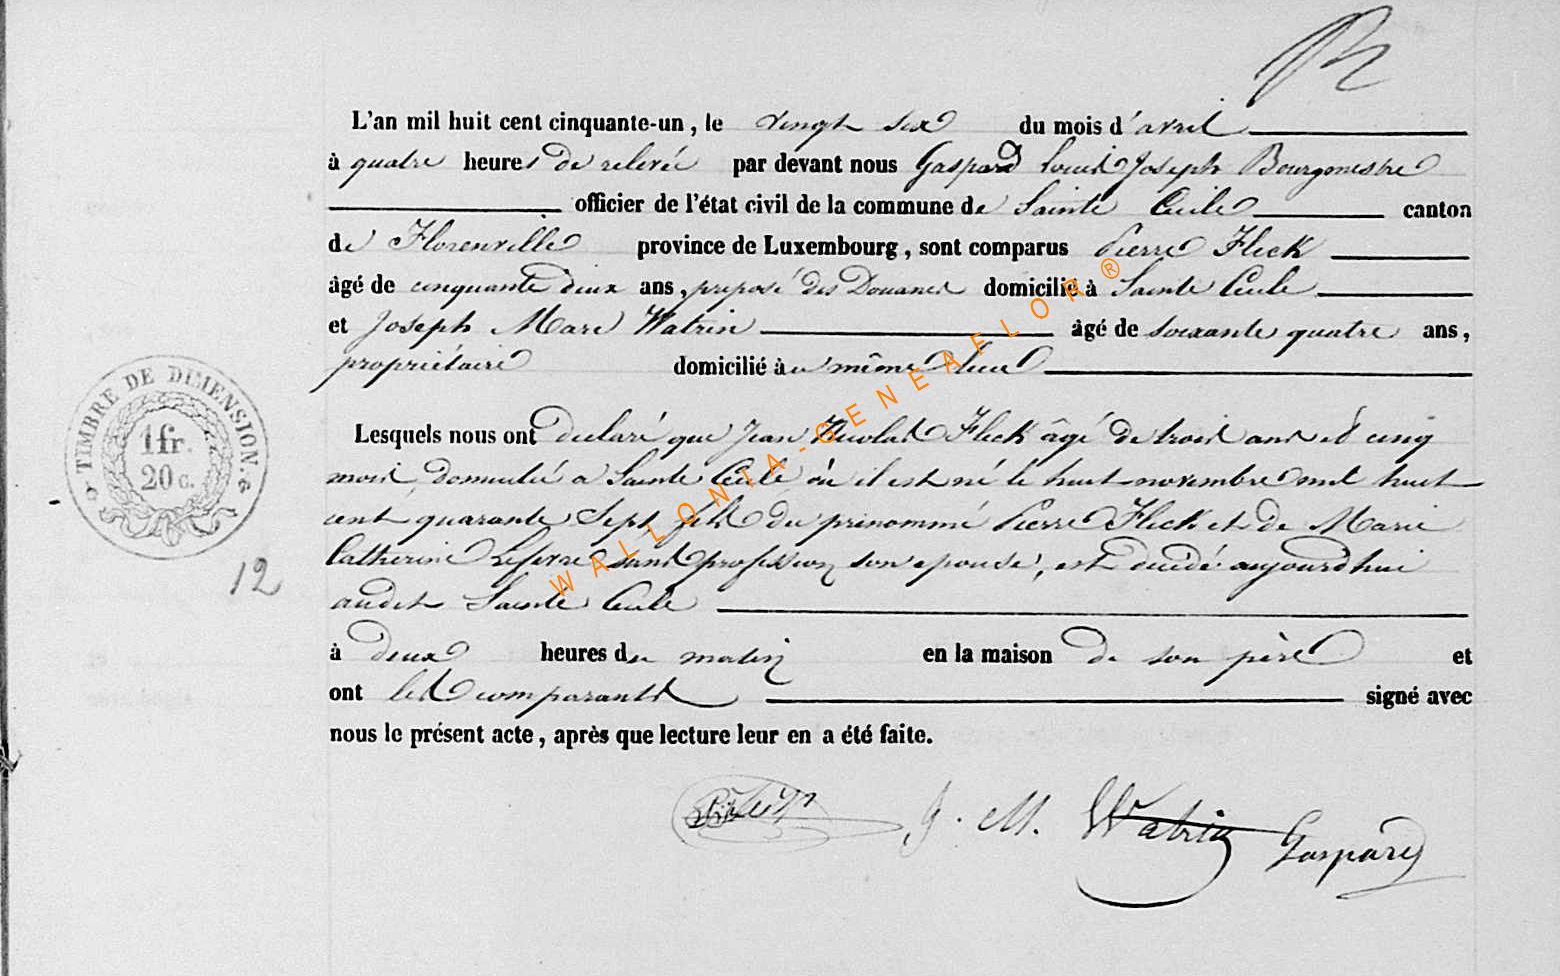 L'an mil huit cent cinquante-un, le vingt six du mois d'avril
à quatre heures de relevée par devant nous Gaspard Louis Joseph Bourgmestre
officier de l'état civil de la commune de Sainte Cécile canton
de Florenville province de Luxembourg, sont comparus Pierre Fleck
âgé de cinquante deux ans, préposé des Douanes domicilié à Sainte Cécile
et Joseph Marc Watrin âgé de soixante quatre ans,
propriétaire domicilié à même lieu
Lesquels nous ont déclaré que Jean Nicolas Fleck âgé de trois ans et cinq
mois, domicilié a Sainte Cécile où il est né le huit novembre mil huit
cent quarante sept, fils du prénommé Pierre Fleck et de Marie
Catherine Lefevre sans profession son épouse, est décédé aujourd'hui
audit Sainte Cécile
à deux heures du matin en la maison de son père et
ont les comparants signé avec
nous le présent acte, après que lecture leur en a été faite.
TIMBRE DE DIMENSION.
1 fr.
20 c.
12
J. M. Watrin Gaspard
WALLONIA-GENEAFLOR ®